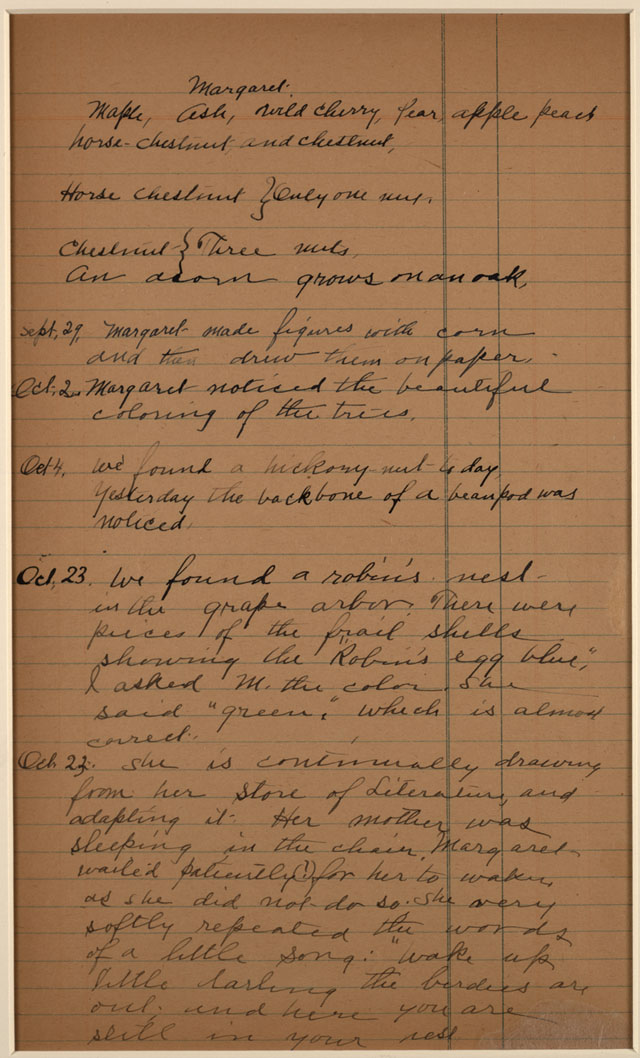 Margaret.
Maple, Ash, wild cherry, pear, apple peach
horse-chestnut, and chestnut,
Horse chestnut } Only one nut.
Chestnut } Three nuts,
An acorn grows on an oak.
Sept. 29, Margaret made figures with corn
and then drew them on paper.
Oct. 2. Margaret noticed the beautiful
coloring of the trees.
Oct 4. We found a hickory nut to day,
Yesterday the backbone of a bean pod was
noticed.
Oct. 23. We found a robin's nest
in the grape arbor. There were
pieces of the frail shells
showing the "Robin's egg blue",
I asked M. the color. She
said "green," which is almost
correct.
Oct. 23. She is continually drawing
from her store of Literature, and
adapting it. Her mother was
sleeping in the chair, Margaret
waited patiently (?) for her to waken,
as she did not do so, she very
softly repeated the words
of a little song: "Wake up
little darling the birdies are
out; and here you are
still in your nest